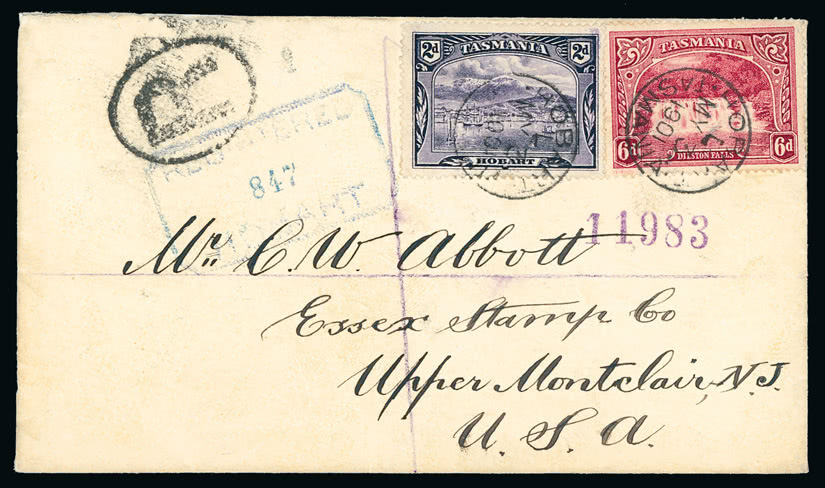 R
REGISTERED
847
HOBART
2d TASMANIA 2d
HOBART
TASMANIA
6d DILSTON FALLS 6d
HOBART
HOBART
TASMANIA
11983
Mr. C. W. Abbott
Essex Stamp Co
Upper Montclair, N.J.
U. S. A.